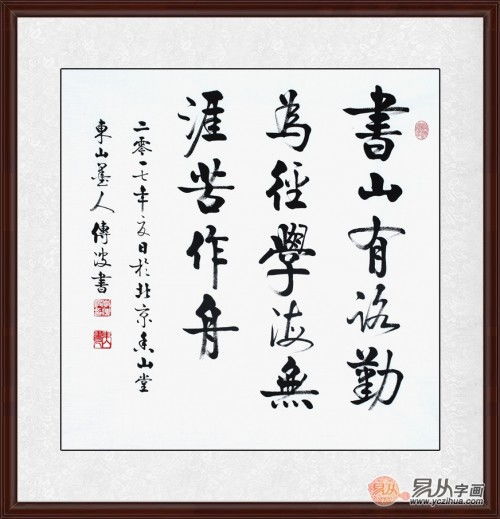 書山有路勤
為徑學海無
涯苦作舟
二零一七年夏日於北京香山堂
東山墨人傅波書
易从
易从字画
www.yczihua.com